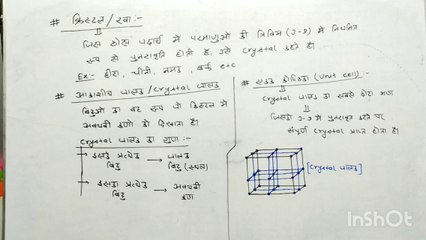 # क्रिस्टल / रवा :-
जिस ठोस पदार्थ में परमाणुओं की त्रिविम (3-D) में नियमित
रूप से पुनरावृति होती है, उसे Crystal कहते है।
Ex:- हीरा, चीनी, नमक, बर्फ etc
# आकाशीय जालक / Crystal जालक
बिंदुओं का वह रूप जो क्रिस्टल में
अवयवी कणों को दिखाता है।
Crystal जालक का गुण:-
→ इसका प्रत्येक बिंदु → जालक बिंदु (स्थल)
→ इसका प्रत्येक बिंदु → अवयवी कण
# एकक कोष्ठिका (Unit cell) :-
Crystal जालक का सबसे छोटा भाग
जिसकी 3-D में पुनरावृत करने पर
संपूर्ण Crystal प्राप्त होता है।
[Crystal जालक]
InShOt